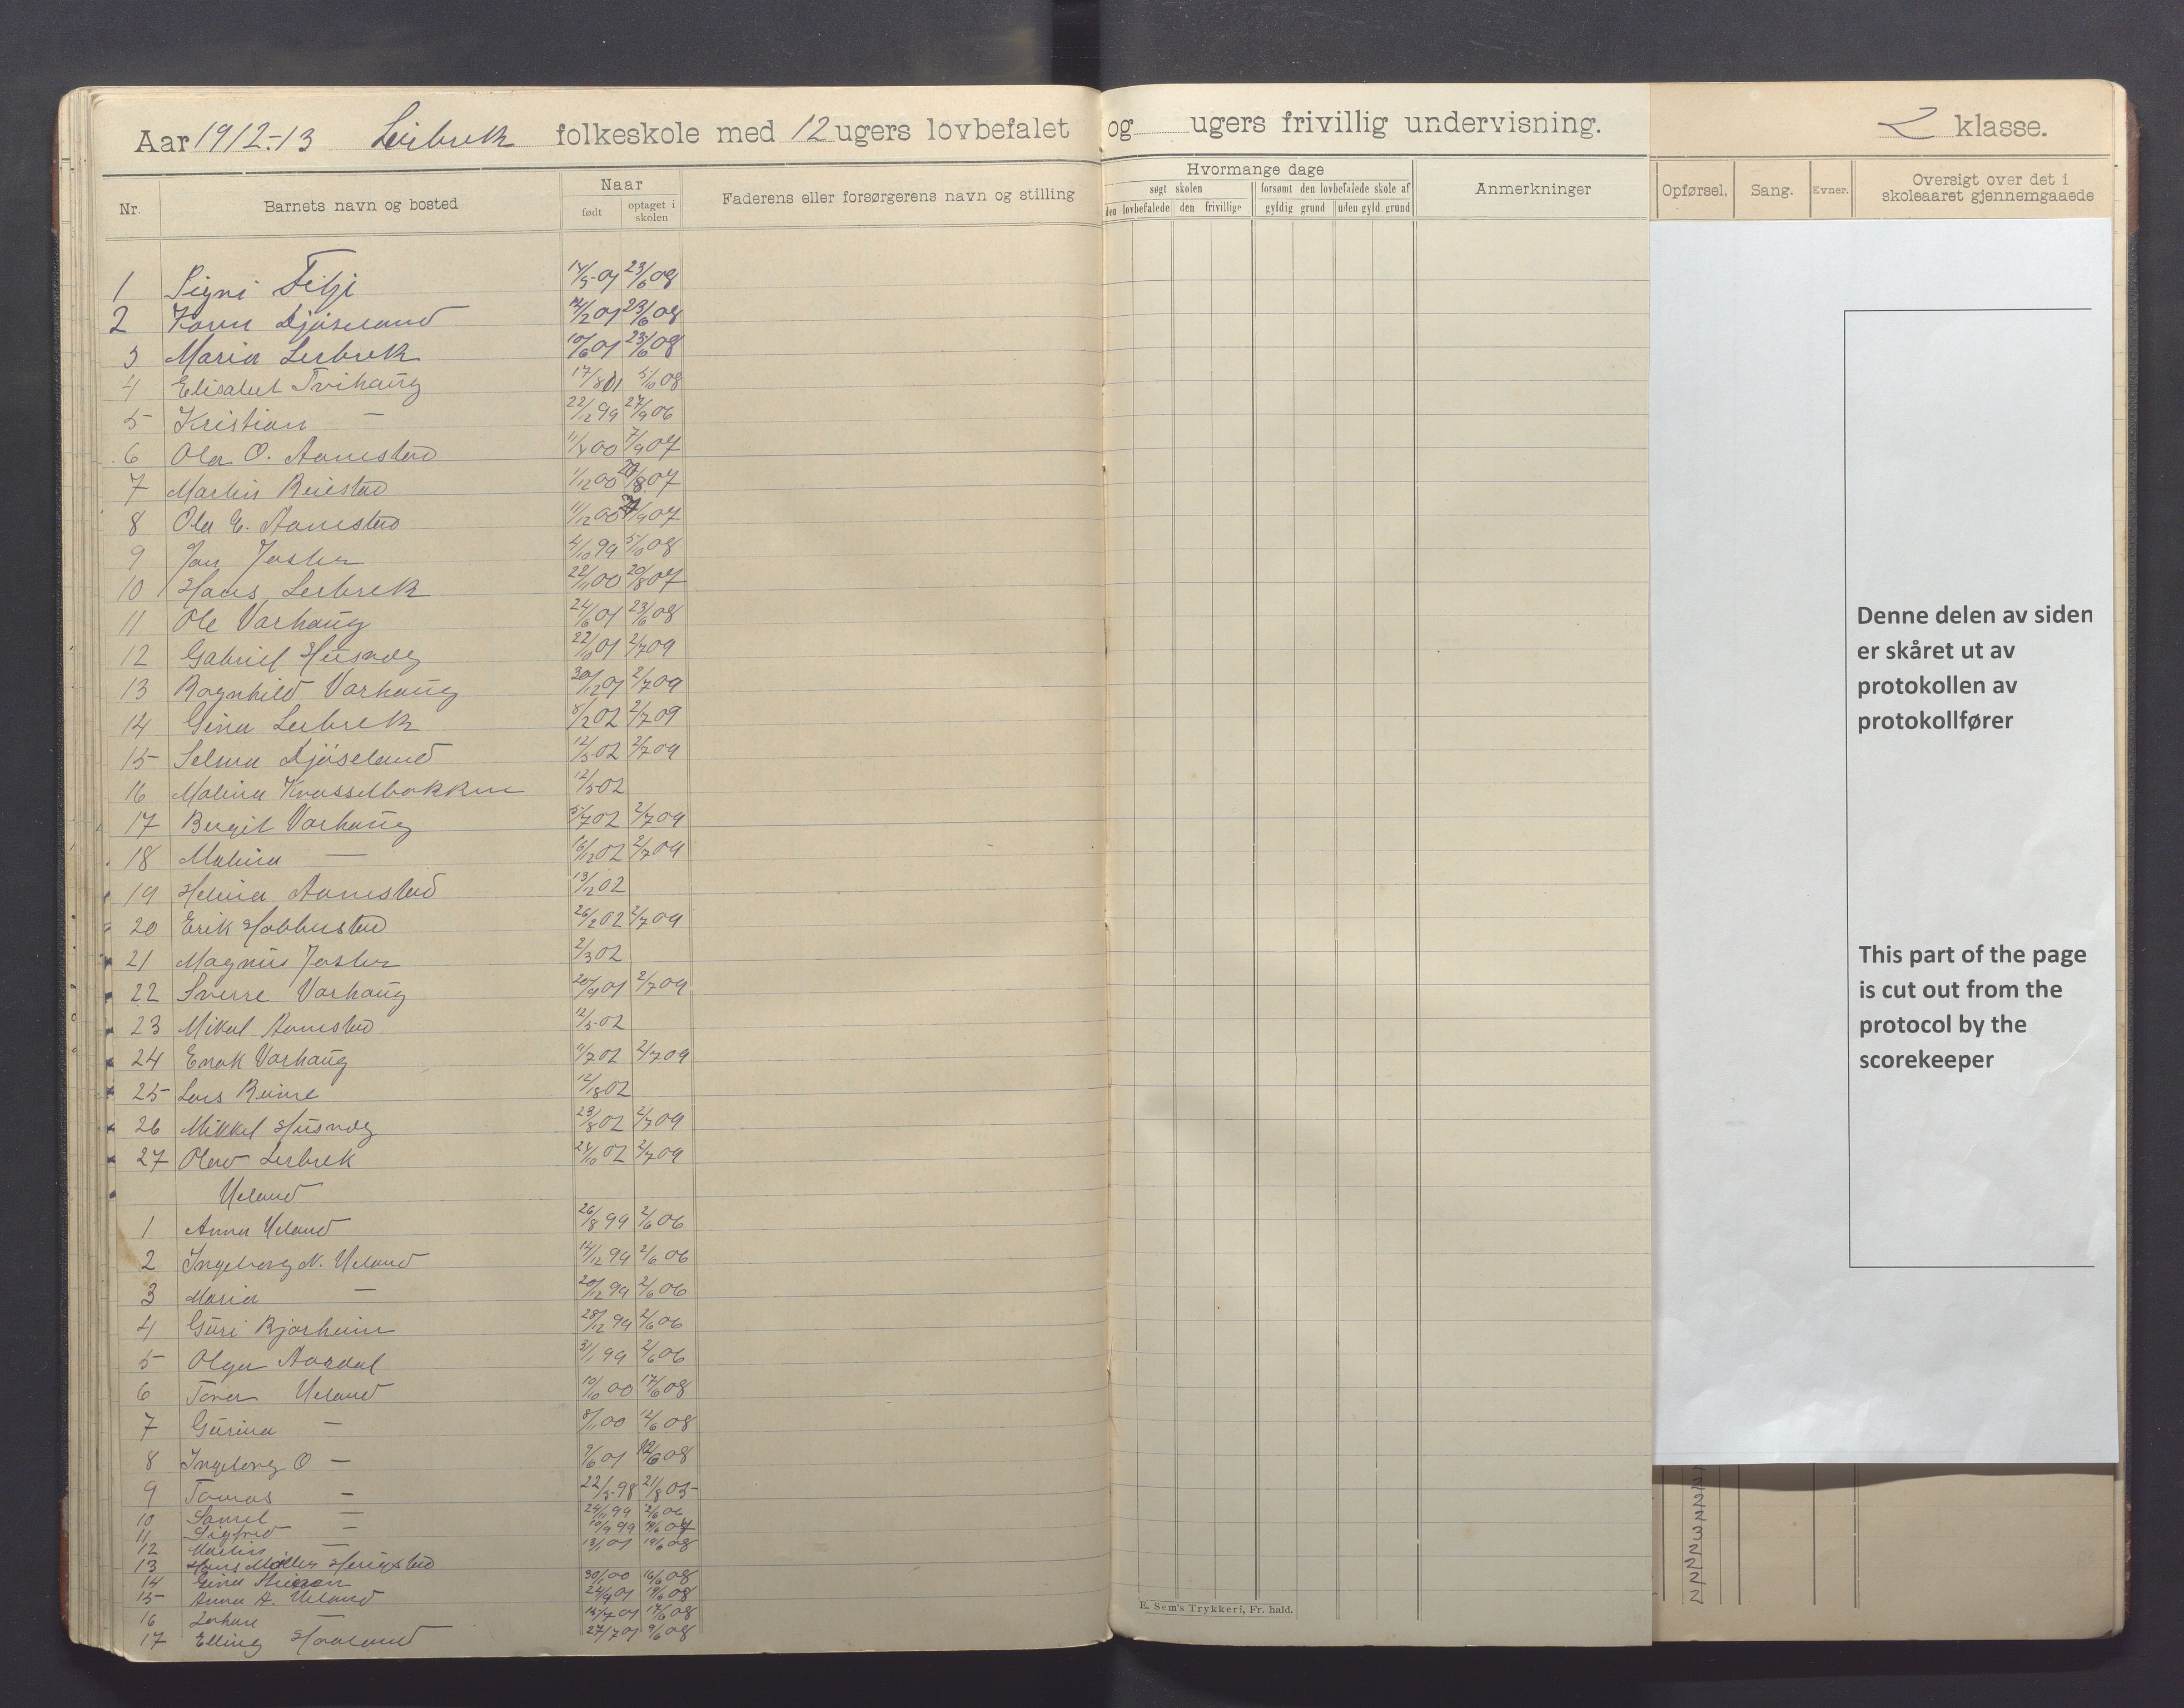 Aar 1912-13 Leirbrek folkeskole med 12 ugers lovbefalet og ugers frivillig undervisning. 2 klasse.
Nr. Barnets navn og bosted Naar født optaget i skolen Faderens eller forsørgerens navn og stilling
Hvormange dage
søgt skolen forsømt den lovbefalede skole af
den lovbefalede den frivillige gyldig grund uden gyld. grund
Anmerkninger
Opførsel. Sang. Evner. Oversigt over det i skoleaaret gjennemgaaede
1 Signi Titje 14/5-01 23/6 08
2 Karen Djøseland 14/2 01 23/6 08
3 Maria Lerbrek 10/6 01 23/6 08
4 Elisabet Tvihaug 17/8 01 5/10 08
5 Kristian — 22/12 99 27/9 06
6 Ola O. Aanestad 11/4 00 7/9 07
7 Martin Reiestad 1/12 00 20/8 07
8 Ola E. Aanestad 11/12 00 /9 07
9 Jan Jaster 4/10 99 5/10 08
10 Hans Lerbrek 22/11 00 20/8 07
11 Ole Varhaug 24/6 01 23/6 08
12 Gabriel Husveg 22/10 01 2/7 09
13 Ragnhild Varhaug 30/12 01 2/7 09
14 Gina Lerbrek 8/2 02 2/7 09
15 Selma Djøseland 12/5 02 2/7 09
16 Malina Kvasselbakken 12/5 02
17 Bergit Varhaug 5/7 02 2/7 09
18 Malina — 16/12 02 2/7 09
19 Helina Aanestad 13/12 02
20 Erik Hobbestad 26/2 02 2/7 09
21 Magnus Jaster 2/3 02
22 Sverre Varhaug 20/9 01 2/7 09
23 Mikal Aanestad 12/5-02
24 Enok Varhaug 11/7 02 2/7 09
25 Lars Reime 12/18 02
26 Mikkel Husveg 23/8 02 2/7 09
27 Olav Lerbrek 24/10 02 2/7 09
Ueland
1 Anna Ueland 26/8 99 2/6 06
2 Ingeborg N. Ueland 14/12 99 2/6 06
3 Maria — 20/12 99 2/6 06
4 Guri Bjorheim 28/12 99 2/6 06
5 Olga Aardal 31/1 99 2/6 06
6 Tora Ueland 10/10 00 17/6 08
7 Gurina — 8/11 00 12/6 08
8 Ingeborg O — 9/6 01 12/6 08
9 Tomas — 22/5-98 21/8 05-
10 Samel — 24/11 99 2/6 06
11 Sigfred — 10/9 99 19/6 07
12 Martin — 13/1 01 19/6 08
13 Hans Møller Herigstad
14 Gina 30/1 00 16/6 08
15 Anna A. Ueland 24/9 01 19/6 08
16 15/7 01 17/6 08
17 Elling Haaland 27/7 01 9/6 08
E. Sem's Trykkeri, Fr. hald.
Denne delen av siden
er skåret ut av
protokollen av
protokollfører
This part of the page
is cut out from the
protocol by the
scorekeeper
2
2
3
2
2
2
2